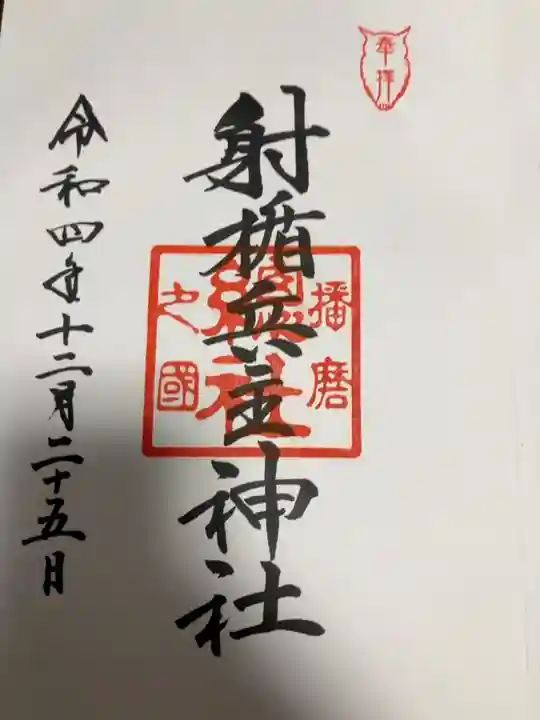 奉拝
射楯兵主神社
播磨
總社
之國
令和四年十二月二十五日